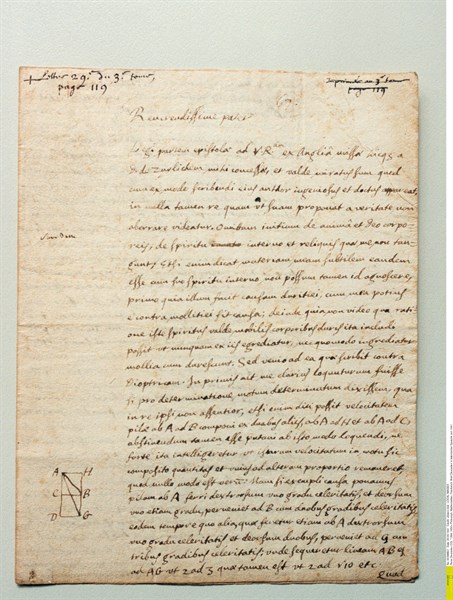 + Lettre 29.e du 3.e tome,
page 119
Imprimée au 3.e tome
page 119
Reverendissime pater
Legi partem epistolæ ad V.R.am ex Anglia missæ hicque a
D. de Zuylichem mihi concessæ, et valde miratus sum quod
cum ex modo scribendi eius author ingeniosus et doctus appareat,
in nulla tamen re quam ut suam proponat a veritate non
aberrare videatur. Omittam initium de anima et Deo corpo-
reis, de spiritu interno et reliquis quæ me non tan-
gunt. Etsi enim dicat materiam meam subtilem eandem
esse cum suo spiritu interno, non possum tamen id agnoscere,
primo quia illum facit causam duritiei, cum mea potius
e contra mollitiei sit causa; deinde quia non video qua rati-
one iste spiritus valde mobilis corporibus duris ita includi
possit ut nunquam ex iis egrediatur, nec quomodo ingrediatur
mollia cum durescunt. Sed venio ad ea quæ scribit contra
Dioptricam. In primis ait me clarius locuturum fuisse
si pro determinatione, motum determinatum dixissem, qua
in re ipsi non assentior, etsi enim dici possit velocitatem
pilæ ab A ad B componi ex duabus aliis, ab A ad H et ab A ad C,
abstinendum tamen esse putavi ab isto modo loquendi, ne
forte ita intelligeretur ut istarum velocitatum in motu sic
composito quantitas et unius ad alteram proportio remaneret,
quod nullo modo est verum. Nam si ex. causa ponamus
pilam ab A ferri dextrorsum uno gradu celeritatis, et deorsum
uno etiam gradu, perveniet ad B cum duobus gradibus celeritatis
eodem tempore quo alia, quæ ferretur etiam ab A dextrorsum
uno gradu celeritatis et deorsum duobus, perveniet ad G cum
tribus gradibus celeritatis; unde sequeretur lineam AB esse
ad AG ut 2 ad 3 quæ tamen est ut 2 ad r 10 etc.
Quod
A H
C B
D G